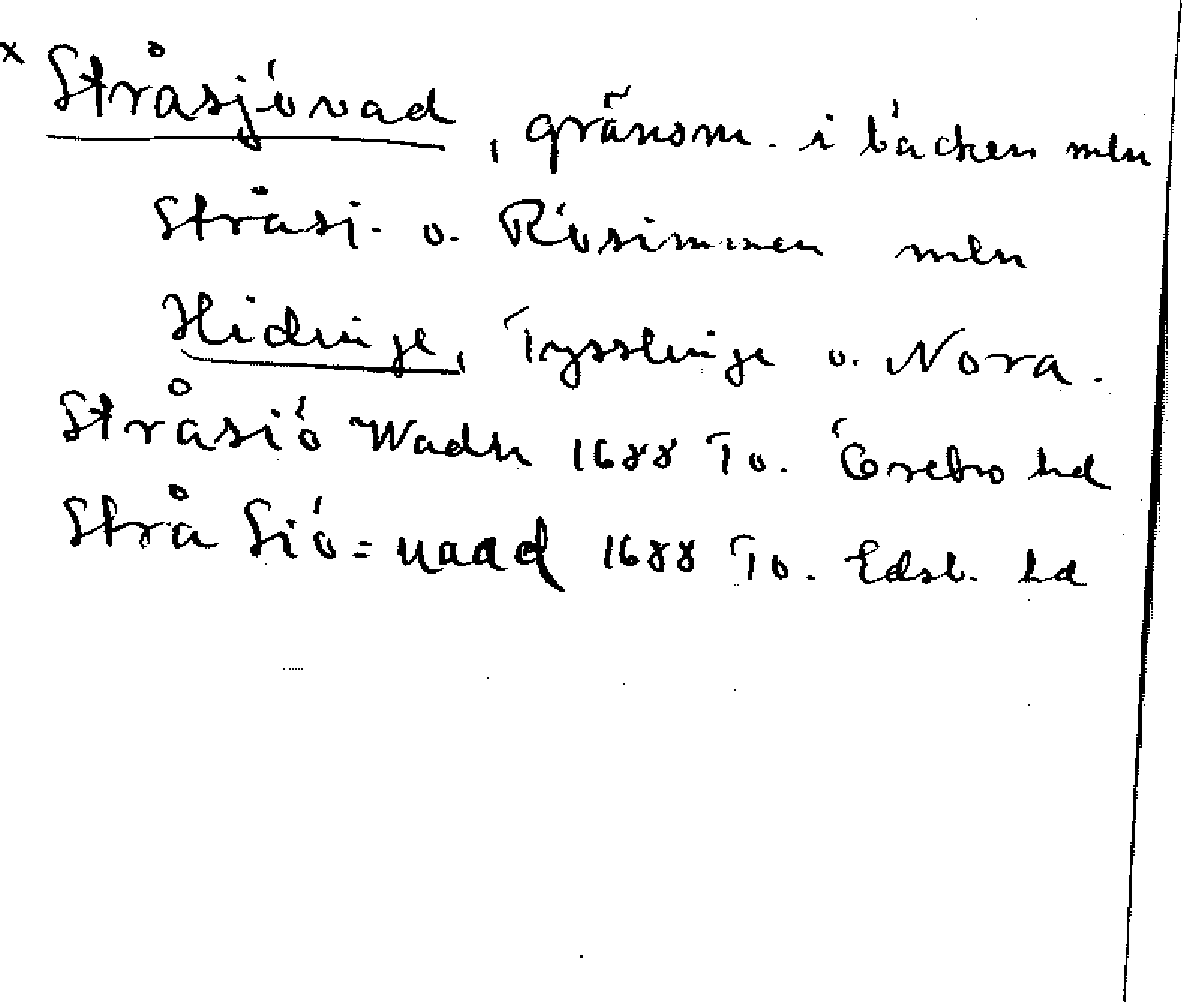 x Stråsjövad, gränsm. i bäcken mln
Stråsj- o. Rösimmen mln
Hidinge, Tysslinge o. Nora.
Stråsiö Wadh 1688 To. Örebro hd
Strå Siö=uaad 1688 To. Edsb. hd